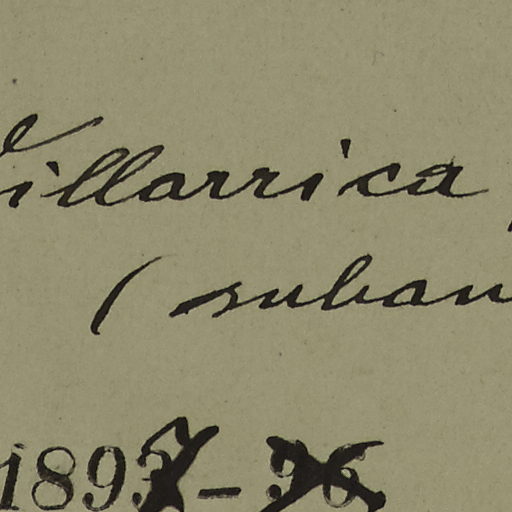 Villarrica
(suban
1897-